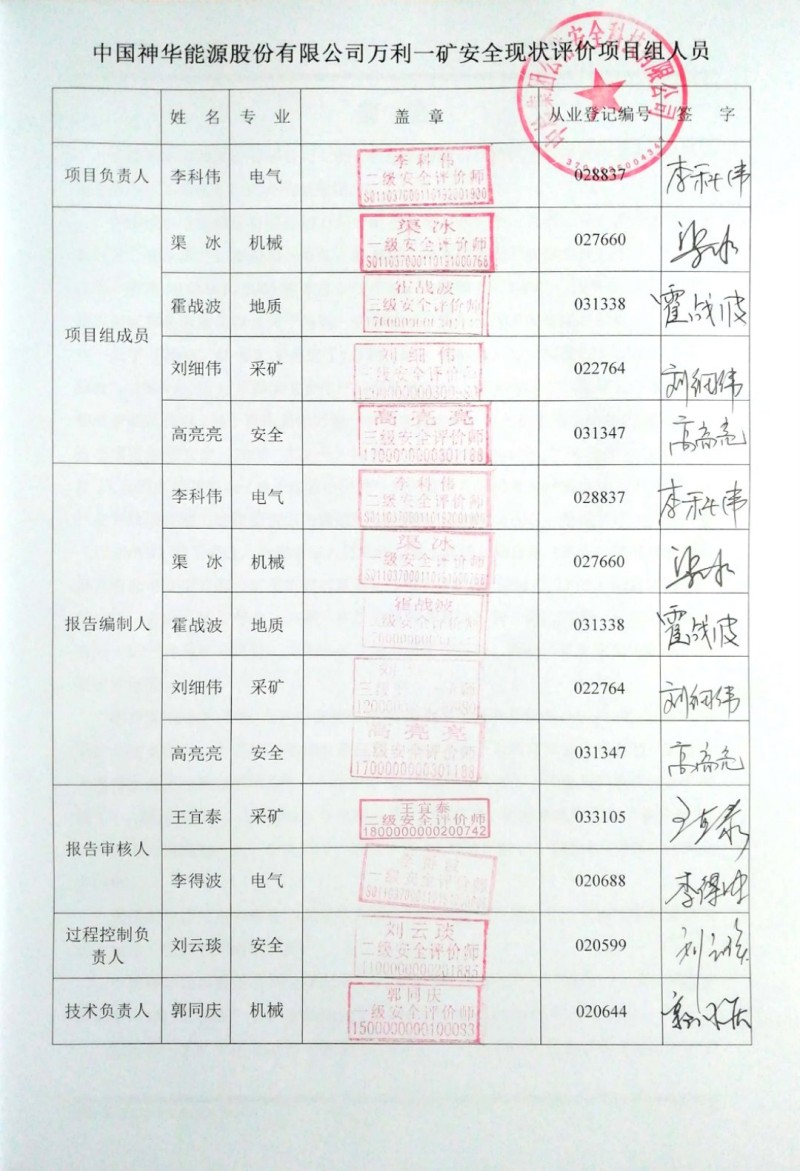 中国神华能源股份有限公司万利一矿安全现状评价项目组人员
姓 名 专 业 盖 章 从业登记编号 签 字
项目负责人 李科伟 电气 李科伟 二级安全评价师 028837 李科伟
项目组成员
渠 冰 机械 渠冰 一级安全评价师 027660 渠冰
霍战波 地质 霍战波 三级安全评价师 031338 霍战波
刘细伟 采矿 刘细伟 三级安全评价师 022764 刘细伟
高亮亮 安全 高亮亮 三级安全评价师 1700000000301188 031347 高亮亮
报告编制人
李科伟 电气 李科伟 二级安全评价师 028837 李科伟
渠 冰 机械 渠冰 一级安全评价师 027660 渠冰
霍战波 地质 霍战波 031338 霍战波
刘细伟 采矿 022764 刘细伟
高亮亮 安全 高亮亮 三级安全评价师 1700000000301188 031347 高亮亮
报告审核人
王宜泰 采矿 王宜泰 二级安全评价师 1800000000200742 033105 王宜泰
李得波 电气 一级安全评价师 020688 李得波
过程控制负
责人
刘云琰 安全 刘云琰 二级安全评价师 020599 刘云琰
技术负责人 郭同庆 机械 郭同庆 一级安全评价师 1500000000100093 020644 郭同庆